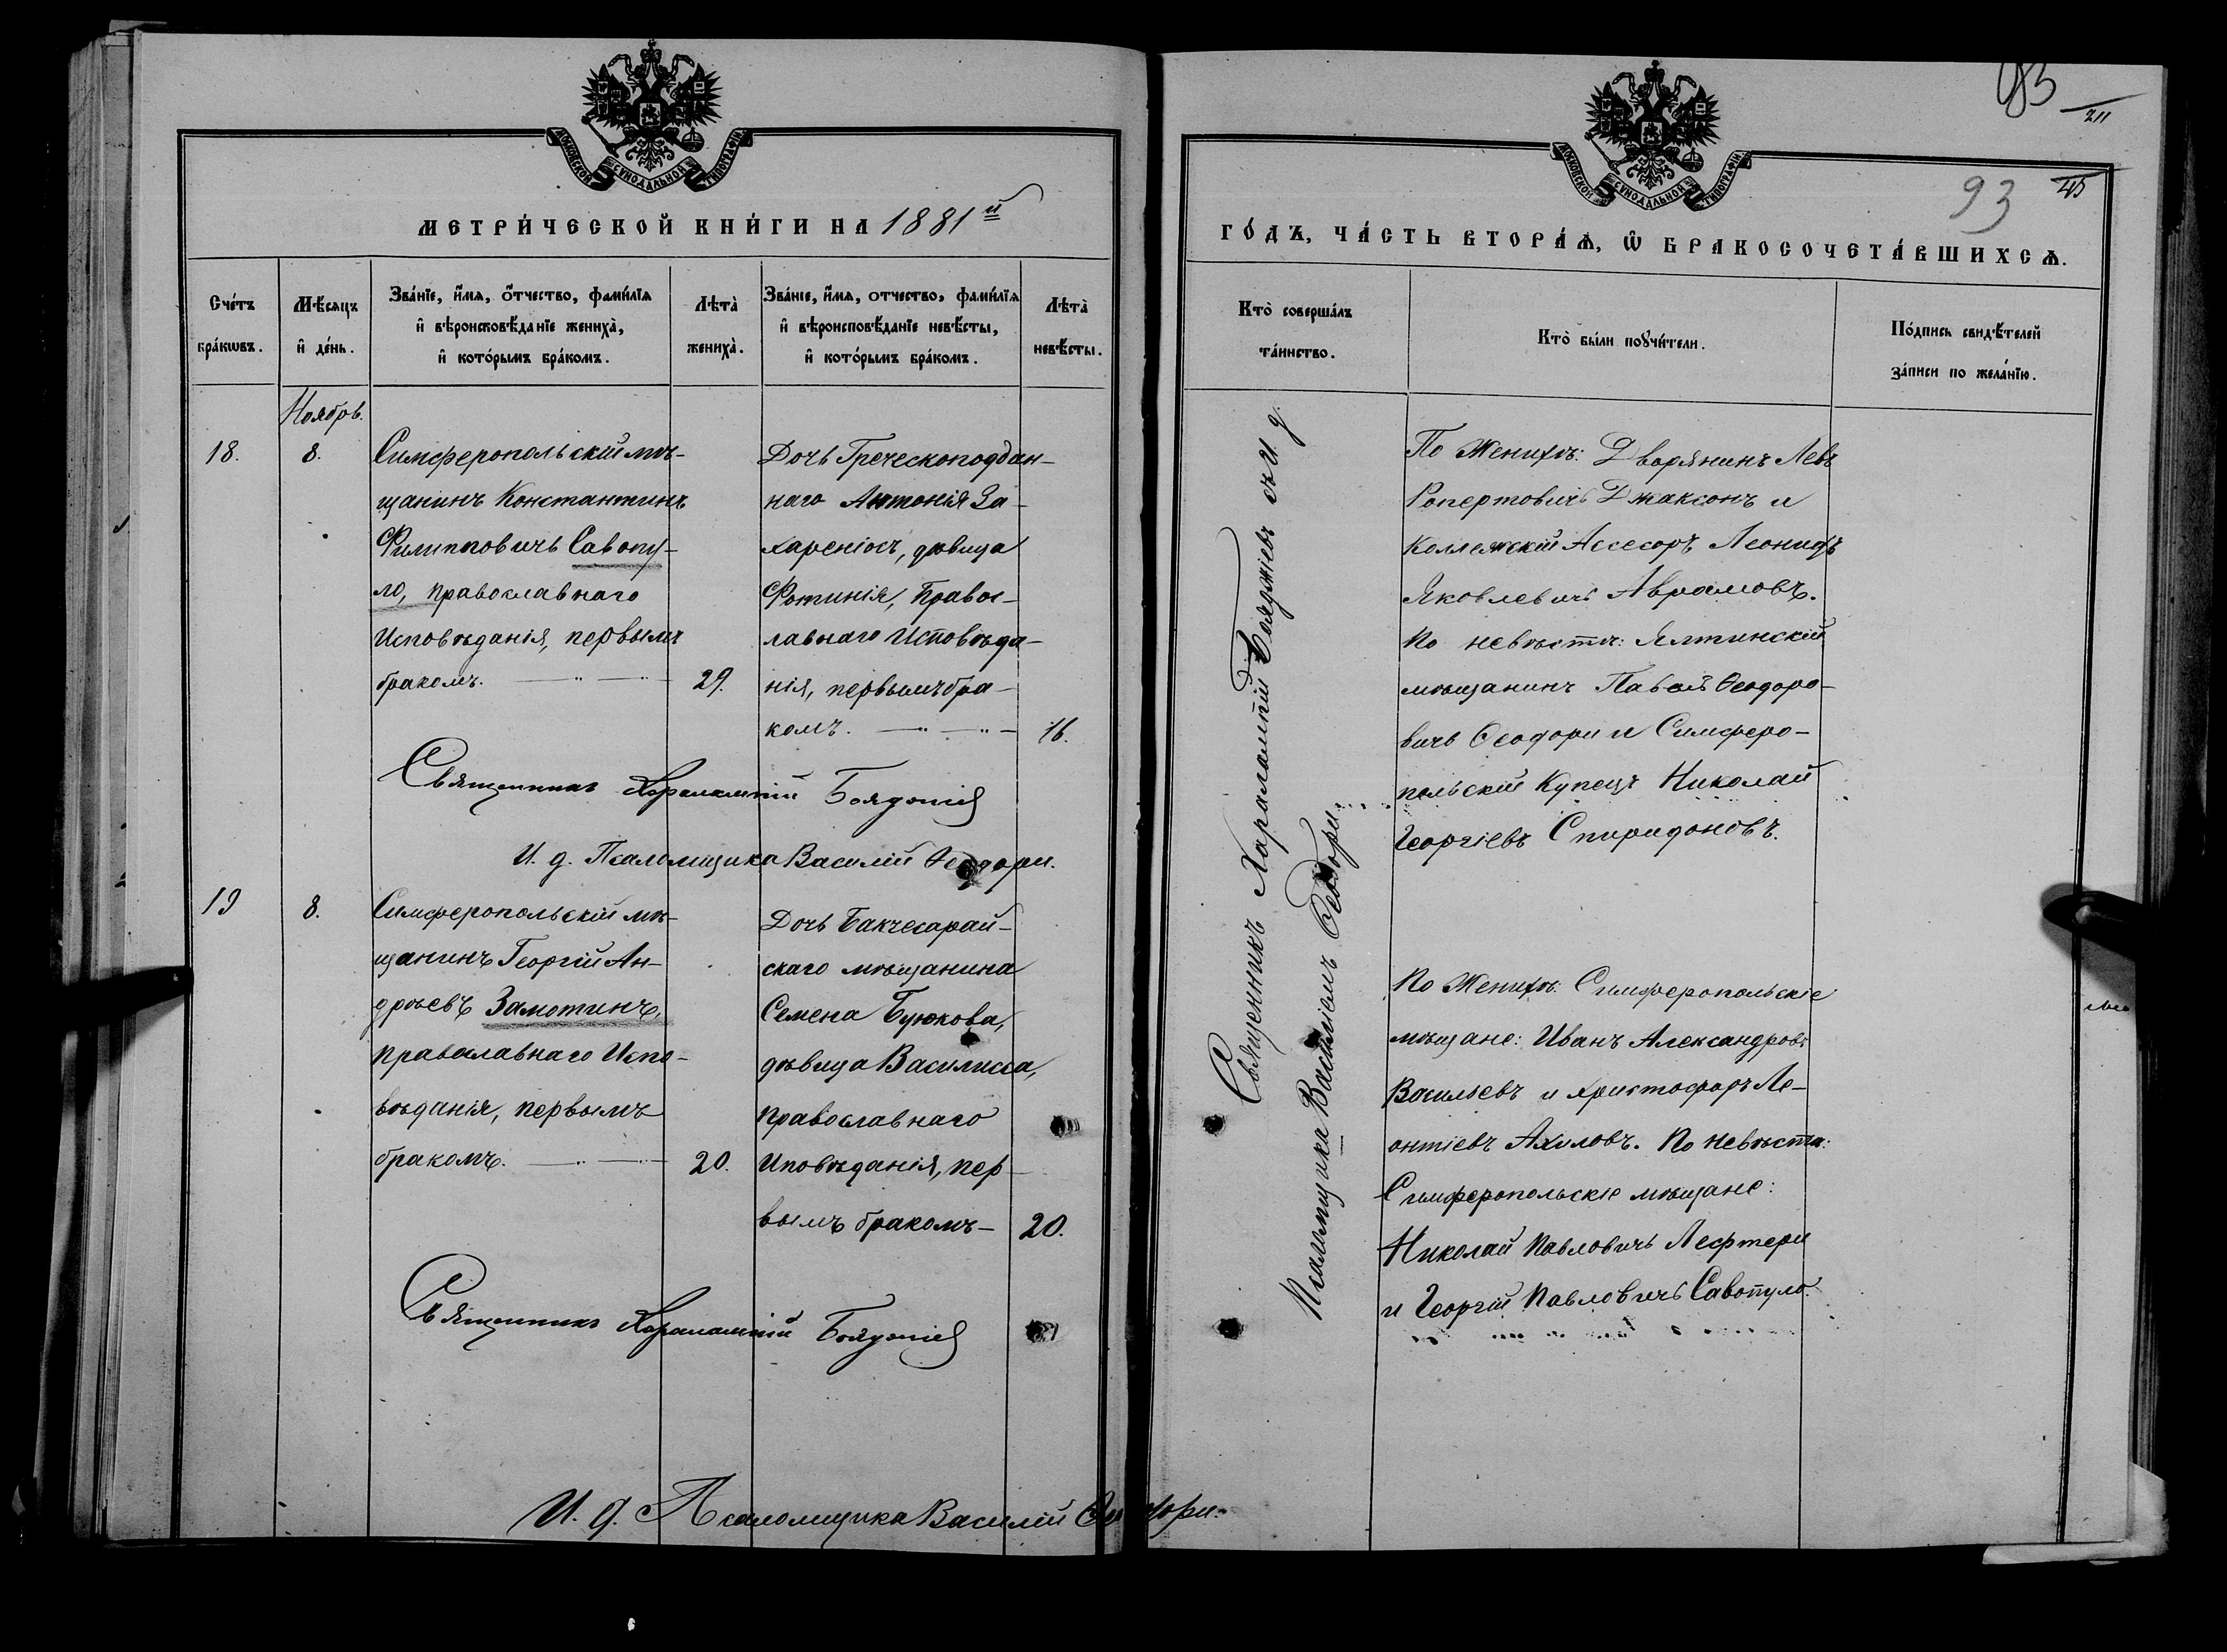 МОСКОВСКОЙ СѴНОДАЛЬНОЙ ТИПОГРАФІИ.
МЕТРИ́ЧЕСКОЙ КНИ́ГИ НА 1881й
Сче́тъ
бра́кѡвъ.
Мѣ́сяцъ
и҆ де́нь.
Зва́нїе, и҆́мя, ѻ҆́тчество, фами́лїя
и҆ вѣроисповѣ́данїе жениха̀,
и҆ кото́рымъ бра́комъ.
Лѣта̀
жениха̀.
Зва́нїе, и҆́мя, отчество, фами́лїя
и҆ вѣроисповѣ́данїе невѣ́сты,
и҆ кото́рымъ бра́комъ.
Лѣта̀
невѣ́сты.
Ноябрь.
18.
8.
Симферопольскій мѣ-
щанинъ Константинъ
Филипповичъ Савопу-
ло, православнаго
Исповѣданія, первымъ
бракомъ.
29.
Дочь Греческоподдан-
наго Антонія За-
хареніосъ, дѣвица
Фотинія, Правос-
лавнаго Исповѣда-
нія, первымъ бра-
комъ.
16.
Священникъ Харалампій Бояджіев
И. д. Псаломщика Василій Ѳеодори.
19
8.
Симферопольскій мѣ-
щанинъ Георгій Ан-
дрѣевъ Замотинъ,
православнаго Испо-
вѣданія, первымъ
бракомъ.
20.
Дочь Бакчесарай-
скаго мѣщанина
Семена Буюкова,
дѣвица Василисса,
православнаго
Иповѣданія, пер-
вымъ бракомъ-
20.
Священникъ Харалампій Бояджіев
И. д. Псаломщика Василій Ѳеодори.
93
МОСКОВСКОЙ СѴНОДАЛЬНОЙ ТИПОГРАФІИ.
ГО́ДЪ, ЧА́СТЬ ВТОРА́Ѧ, Ѡ҆ БРАКОСОЧЕТА́ВШИХСѦ.
Кто̀ соверша́лъ
та́инство.
Кто̀ бы́ли поꙋчи́тели.
По́дпись свидѣ́телей
за́писи по жела́нїю.
Священникъ Харалампій Бояджіевъ съ И. д.
Псаломщика Василіемъ Ѳеодори.
По Женихѣ: Дворянинъ Левъ
Ропертовичъ Джаксонъ и
Коллежскій Ассесоръ Леонидъ
Яковлевичъ Аврамовъ.
По невѣстѣ: Ялтинскій
мѣщанинъ Павелъ Ѳеодоро-
вичъ Ѳеодори и Симферо-
польскій Купецъ Николай
Георгіевъ Спиридоновъ.
По Женихѣ: Симферопольскіе
мѣщане: Иванъ Александровъ
Васильевъ и Христофоръ Ле-
онтіевъ Ахиловъ. По невѣстѣ:
Симферопольскіе мѣщане:
Николай Павловичъ Лефтери
и Георгій Павловичъ Савопуло.